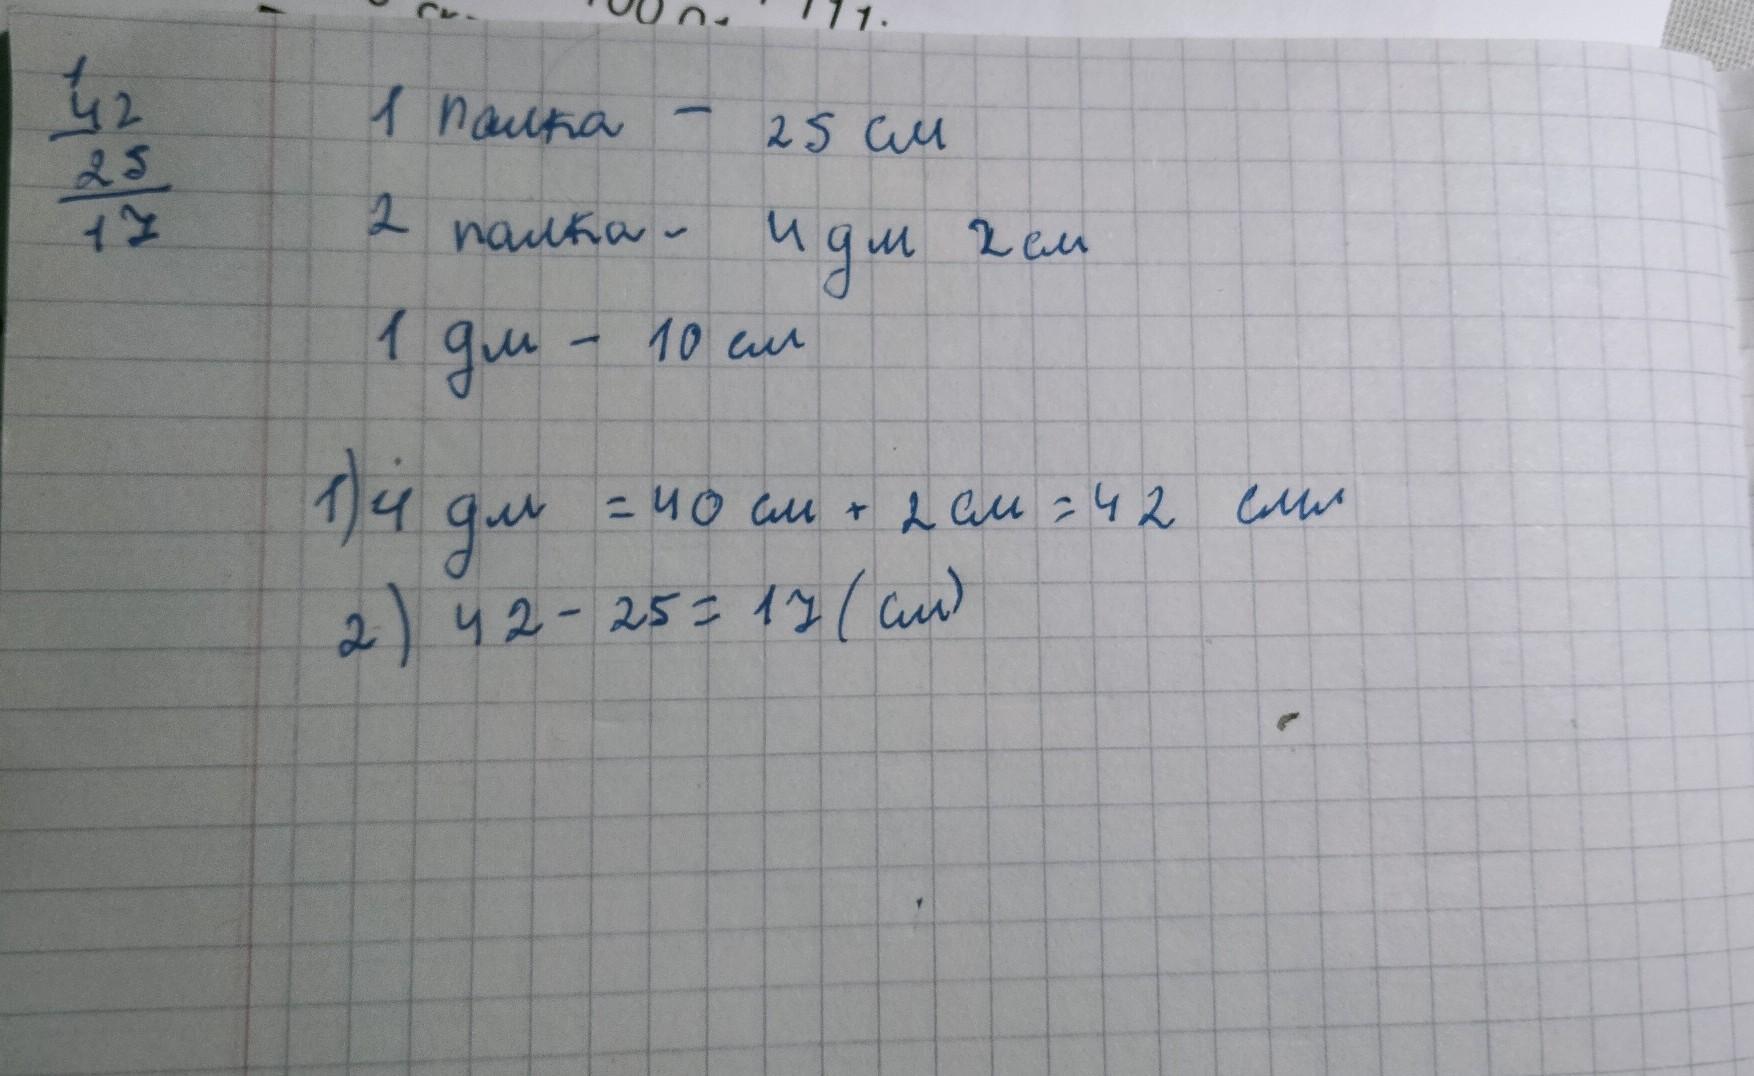 100
1
42
-
25
17
1 палка - 25 см
2 палка - 4 дм 2 см
1 дм - 10 см
1) 4 дм = 40 см + 2 см = 42 см
2) 42 - 25 = 17 (см)